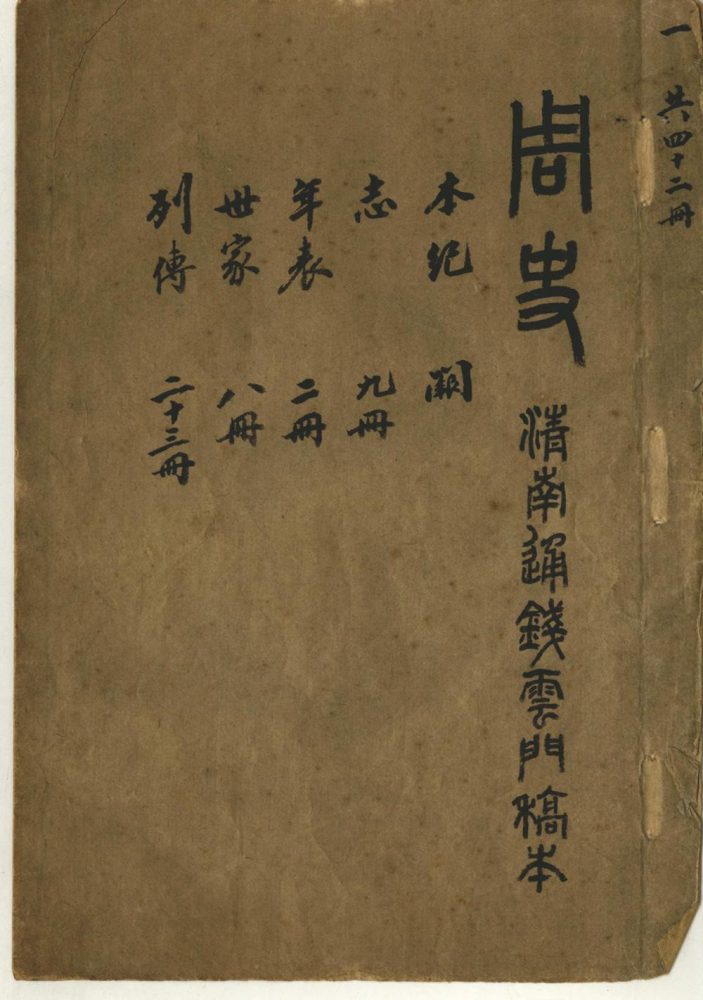 一 共四十二冊
周史 清南通錢雲門稿本
本紀 闕
志 九冊
年表 二冊
世家 八冊
列傳 二十三冊